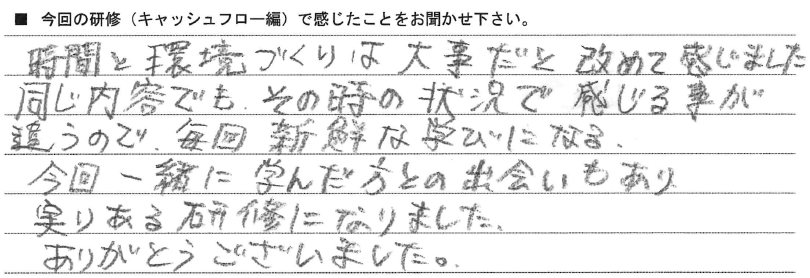 ■ 今回の研修（キャッシュフロー編）で感じたことをお聞かせ下さい。
時間と環境づくりは大事だと改めて感じました
同じ内容でも、その時の状況で感じる事が
違うので、毎回新鮮な学びになる、
今回一緒に学んだ方との出会いもあり
実りある研修になりました、
ありがとうございました。